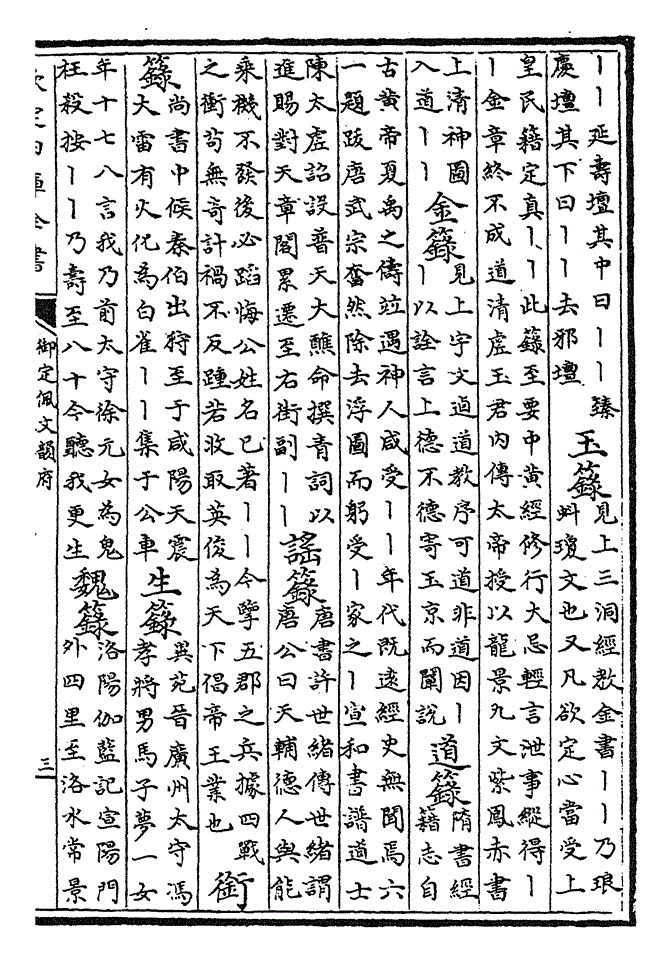 丨丨延壽壇其中曰丨丨臻
慶壇其下曰丨丨去邪壇
玉籙
見上三洞經教金書丨丨乃琅
虯瓊文也又凡欲定心當受上
皇民籍定真丨丨此籙至要中黄經修行大忌輕言泄事縱得丨
丨金章終不成道清虛玉君内傳太帝授以龍景九文紫鳳赤書
上清神圖
入道丨丨
金籙
見上宇文逌道教序可道非道因丨
丨以詮言上德不德寄玉京而闡說
道籙
隋書經
籍志自
古黄帝夏禹之儔竝遇神人咸受丨丨年代既逺經史無聞焉六
一題跋唐武宗奮然除去浮圖而躬受丨家之丨宣和書譜道士
陳太虛詔設普天大醮命撰青詞以
進賜對天章閣累遷至右街副丨丨
謠籙
唐書許世緒傳世緒謂
唐公曰天輔德人與能
乘機不發後必蹈悔公姓名已著丨丨今擥五郡之兵據四戰
之衝茍無奇計禍不反踵若收取英俊為天下倡帝王業也
銜
籙
尚書中候秦伯出狩至于咸陽天震
大雷有火化為白雀丨丨集于公車
生籙
異苑晉廣州太守馮
孝將男馬子夢一女
年十七八言我乃前太守徐元女為鬼
枉殺按丨丨乃壽至八十今聽我更生
魏籙
洛陽伽藍記宣陽門
外四里至洛水常景
欽定四庫全書
御定佩文韻府
三